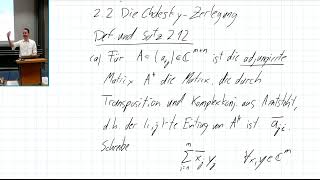 2.2 Die Cholesky-Zerlegung
Def und Satz 2.12
(a) Für A = (a_ij) ∈ ℂ^{m×n} ist die adjungierte
Matrix A* die Matrix, die durch
Transposition und Komplexkonj. aus A entsteht,
d.h. der (i,j)te Eintrag von A* ist \overline{a_{ji}}.
Schreibe
\sum_{j=1}^{m} \overline{x_j} y_j ∀ x,y ∈ ℂ^m